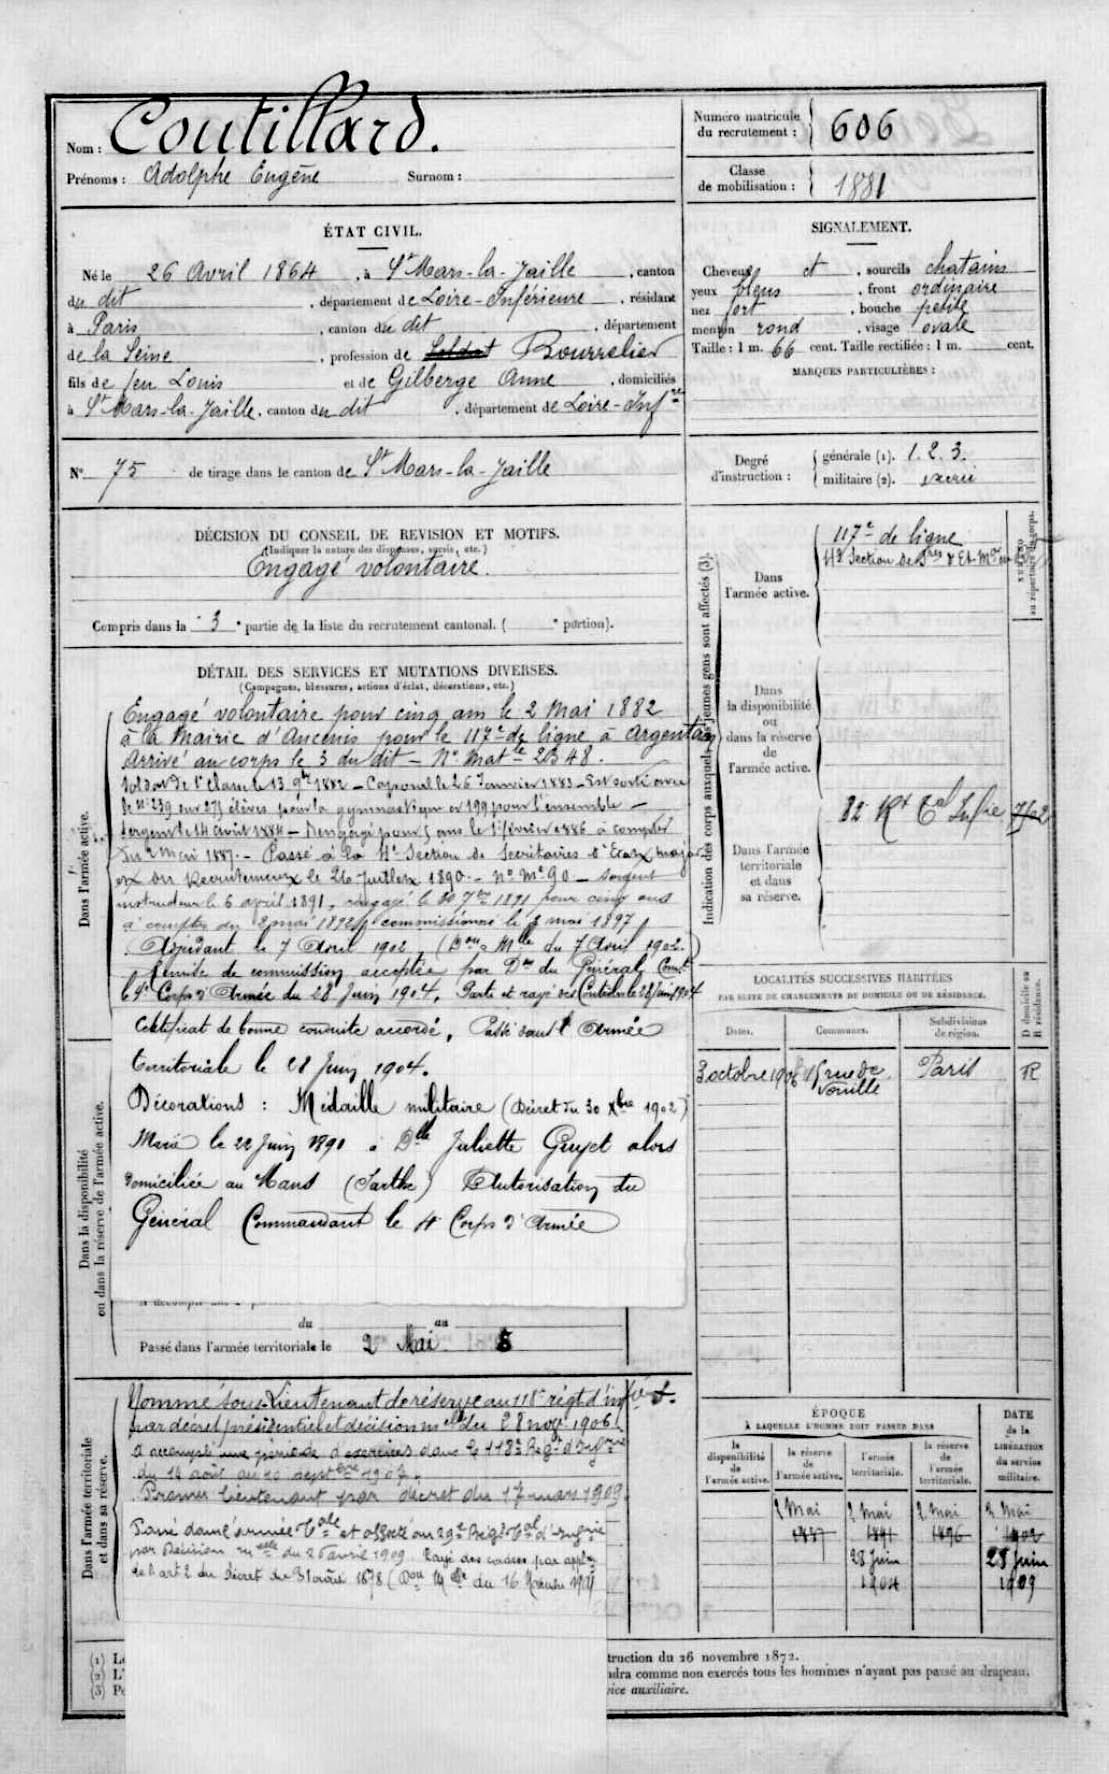 Nom : Coutillard.
Prénoms : Adolphe Eugène Surnom :
Numéro matricule du recrutement : 606
Classe de mobilisation : 1881
ÉTAT CIVIL.
Né le 26 Avril 1864, à St Mars-la-Jaille, canton
du dit, département de Loire-Inférieure, résidant
à Paris, canton du dit, département
de la Seine, profession de Soldat Bourrelier
fils de feu Louis et de Gilberge Anne, domiciliés
à St Mars-la-Jaille, canton du dit, département de Loire-Infre
SIGNALEMENT.
Cheveux et, sourcils chatains
yeux bleus, front ordinaire
nez fort, bouche petite
menton rond, visage ovale
Taille : 1 m. 66 cent. Taille rectifiée : 1 m. cent.
MARQUES PARTICULIÈRES :
N° 75 de tirage dans le canton de St Mars-la-Jaille
Degré d'instruction : générale (1). 1. 2. 3.
militaire (2). exercé
DÉCISION DU CONSEIL DE REVISION ET MOTIFS.
(Indiquer la nature des dispenses, sursis, etc.)
Engagé volontaire.
Compris dans la 3e partie de la liste du recrutement cantonal. ( e portion).
DÉTAIL DES SERVICES ET MUTATIONS DIVERSES.
(Campagnes, blessures, actions d'éclat, décorations, etc.)
Dans l'armée active.
Engagé volontaire pour cinq ans le 2 Mai 1882
à la Mairie d'Ancenis pour le 117e de ligne à Argentan
Arrivé au corps le 3 du dit - No Matle 2348.
Soldat de 1e classe le 13 9bre 1882 - Caporal le 26 Janvier 1883 - Est sorti avec
le No 239 sur 275 élèves pour la gymnastique et 199 pour l'ensemble -
Sergent le 14 Août 1884 - Rengagé pour 5 ans le 1er février 1886 à compter
du 2 Mai 1887. - Passé à la 4e Section de Secrétaires d'Etat major
et du Recrutement le 26 Juillet 1890. - No Mle 90 - Sergent
instructeur le 6 avril 1891, rengagé le 20 7bre 1891 pour cinq ans
à compter du 2 mai 1892, commissionné le 2 mai 1897
Adjudant le 7 Avril 1902 (Don Mlle du 7 Avril 1902.)
Remise de commission acceptée par Don du Général Comt
le 4e Corps d'Armée du 28 Juin 1904. Parti et rayé des Contrôles le 28 Juin 1904
Certificat de bonne conduite accordé, Passé dans l'Armée
territoriale le 28 Juin 1904.
Décorations : Médaille militaire (Décret du 30 Xbre 1902)
Marié le 22 Juin 1890 à Dlle Juliette Guyet alors
domiciliée au Mans (Sarthe) Autorisation du
Général Commandant le 4e Corps d'Armée
Dans la disponibilité ou dans la réserve de l'armée active.
du au
Passé dans l'armée territoriale le 2 Mai
Dans l'armée territoriale et dans sa réserve.
Nommé sous-Lieutenant de réserve au 118e régt d'infie
par décret présidentiel et décision mlle du 28 nove 1906
A accompli une période d'exercices dans le 118e Régt d'Infrie
du 14 août au 10 septbre 1907.
Promu Lieutenant par décret du 17 mars 1909
Passé dans l'armée Tale et affecté au 29e Régt Tal d'Infrie
par Décision mlle du 26 avril 1909. Rayé des cadres par applon
de l'art 2 du Décret du 31 août 1878 (Don Mlle du 16 Novembre 1911)
Indication des corps auxquels les jeunes gens sont affectés (3).
NUMÉRO au répertoire du corps.
Dans l'armée active.
117e de ligne
4e Section de Sres d'Et. Mor
Dans la disponibilité ou dans la réserve de l'armée active.
Dans l'armée territoriale et dans sa réserve.
82 Rt Tal Infie
LOCALITÉS SUCCESSIVES HABITÉES
PAR SUITE DE CHANGEMENTS DE DOMICILE OU DE RÉSIDENCE.
Dates. Communes. Subdivisions de région. D domicile ou R résidence.
3 octobre 1906 15 rue de Vouillé Paris R
ÉPOQUE
À LAQUELLE L'HOMME DOIT PASSER DANS
la disponibilité de l'armée active. la réserve de l'armée active. l'armée territoriale. la réserve de l'armée territoriale.
DATE de la LIBÉRATION du service militaire.
2 Mai 1887 2 mai 1891 2 mai 1896 2 Mai 1902
28 Juin 1904 28 Juin 1909
(1) L
(2) L'
(3) P
truction du 26 novembre 1872.
ndra comme non exercés tous les hommes n'ayant pas passé au drapeau.
vice auxiliaire.